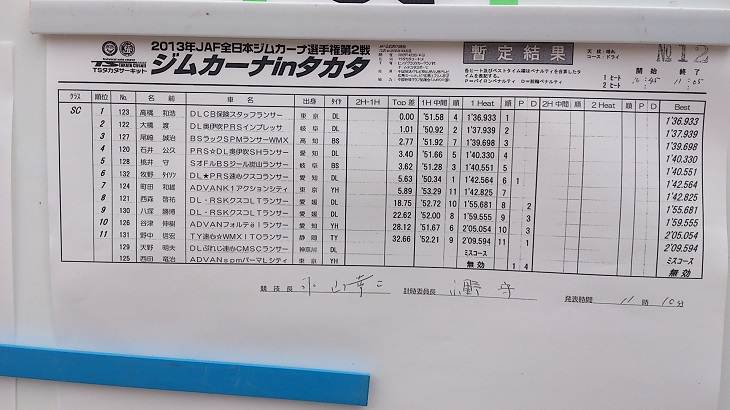 2013年JAF全日本ジムカーナ選手権第2戦
ジムカーナinタカタ
TSタカタサーキット
暫定結果
天候:晴れ
コース:ドライ
No 12
各ヒート及びベストタイム順はペナルティを含算したタイムを表記する。
P=パイロンペナルティ D=脱輪ペナルティ
開始 終了
1 ヒート 10:45 11:05
2 ヒート
クラス 順位 No. 名前 車名 出身 タイヤ 2H-1H Top差 1H中間 順 1 Heat 順 P D 2H中間 順 2 Heat 順 P D Best
SC 1 123 高橋 和浩 DLCB保険スタッフランサー 東京 DL 0.00 '51.58 4 1'36.933 1 1'36.933
2 122 大橋 渡 DL奥伊吹PRSインプレッサ 岐阜 DL 1.01 '50.92 2 1'37.939 2 1'37.939
3 127 尾崎 誠治 BSラックSPMランサーWMX 高知 BS 2.77 '51.92 7 1'39.698 3 1'39.698
4 120 石井 公久 PRS☆DL奥伊吹SHランサー 愛知 DL 3.40 '51.66 5 1'40.330 4 1'40.330
5 128 桃井 守 BS 3.62 '51.28 3 1'40.551 5 1'40.551
6 132 牧野 タイソン DL★PRS速心クスコランサー 愛知 DL 5.63 '50.34 1 1'42.564 6 1 1'42.564
7 124 町田 和雄 ADVANK1アクションシティ 東京 YH 5.89 '53.29 11 1'42.825 7 1'42.825
8 121 西森 啓祐 DL・RSKクスコLTランサー 愛媛 DL 18.75 '52.72 10 1'55.681 8 2 1'55.681
9 130 八塚 勝博 DL・RSKクスコLTランサー 愛媛 DL 22.62 '52.00 8 1'59.555 9 3 1'59.555
10 126 谷津 伸樹 愛知 YH 28.12 '51.67 6 2'05.054 10 3 2'05.054
11 131 野中 信宏 TY速心☆WMXITOランサー 静岡 TY 32.66 '52.21 9 2'09.594 11 1 2'09.594
129 天野 昭夫 DLぷれじ速心CMSCランサー 神奈川 DL ミスコース ミスコース
125 西田 竜治 ADVANspmパーマLシティ 東京 YH 無効 1 4 無効
競技長 計時委員長 小野 守 発表時間 11 時 10 分